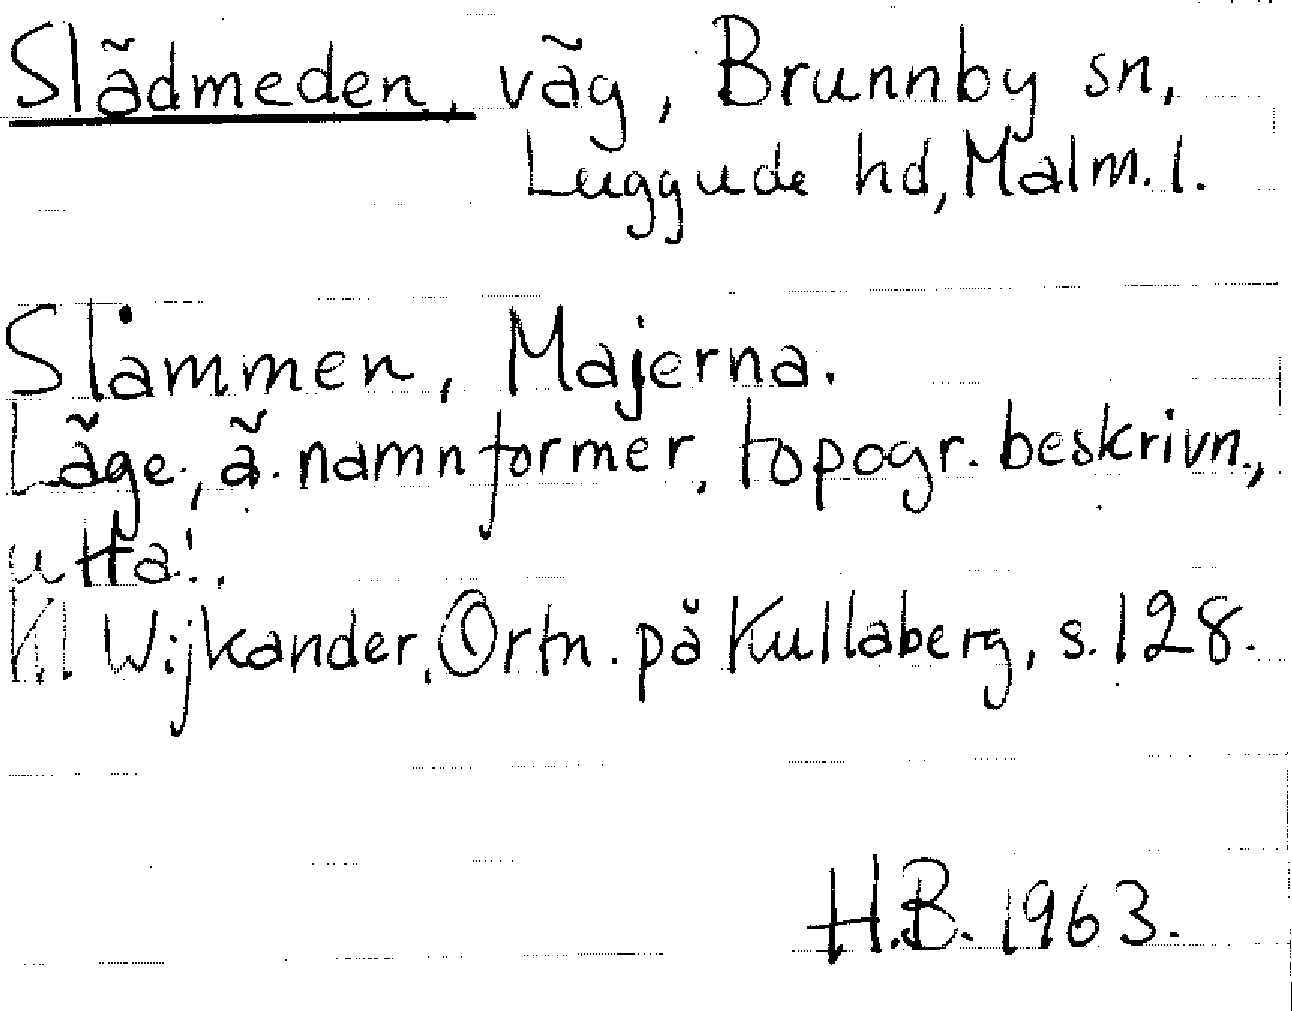 Slädmeden, väg, Brunnby sn,
Luggude hd, Malm. l.
Slåmmen, Majerna.
Läge, ä. namnformer, topogr. beskrivn.,
utta!.
Kl. Wijkander, Ortn. på Kullaberg, s. 128.
H.B. 1963.